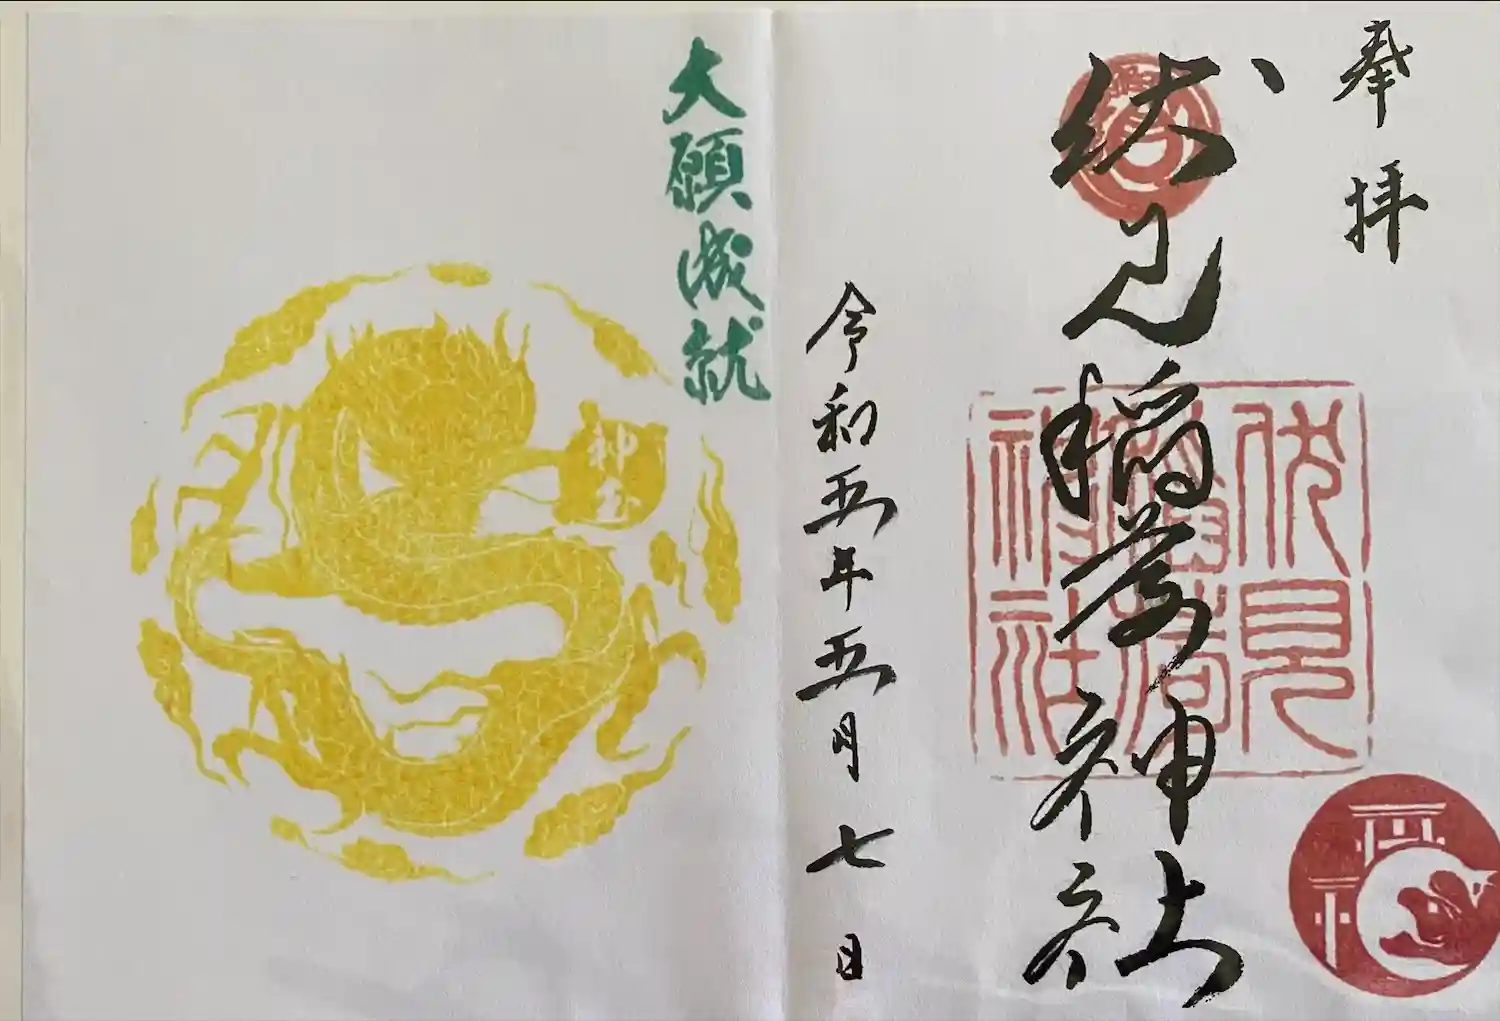 奉拝
伏見稲荷神社
伏見
稲荷
神社
令和五年五月七日
大願成就
神玉